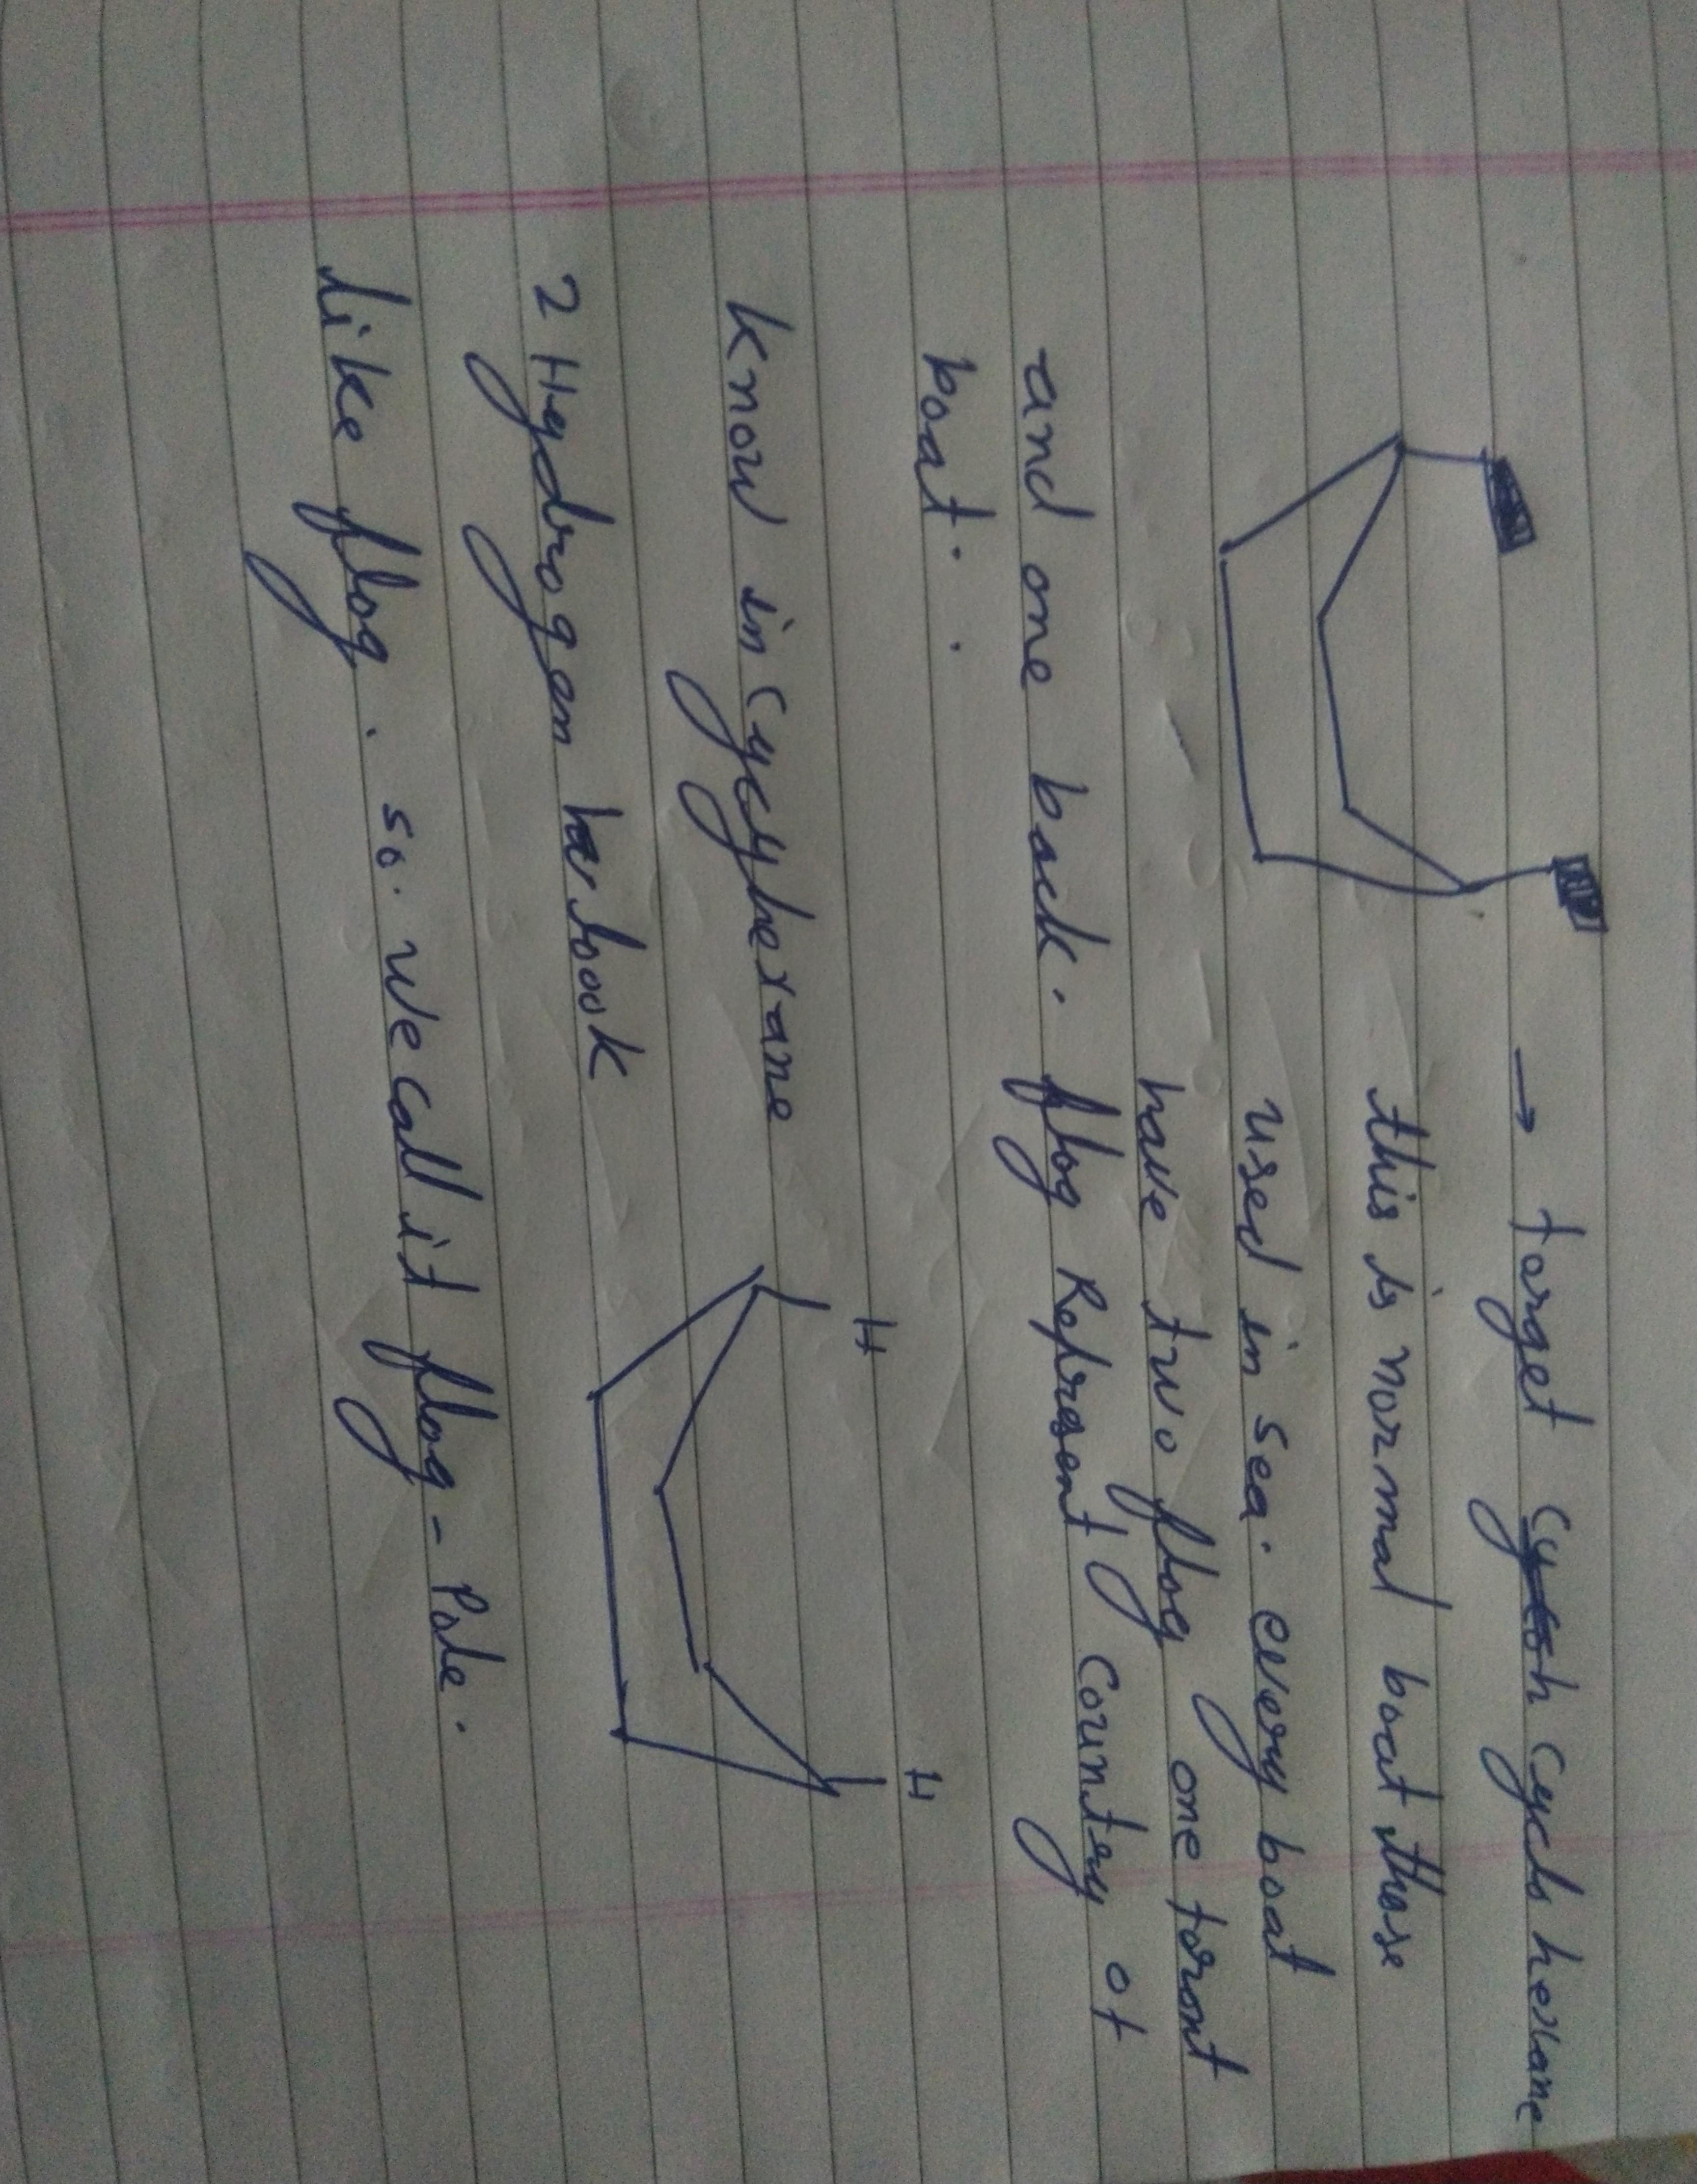 → forget cycloh cyclohexane
this is normal boat those
used in sea. every boat
have two flag one front
and one back. flag Represent, country of
boat.
know in cycyhexane
2 Hydrogen her look
like flag. so. we call it flag-Pole.
H
H